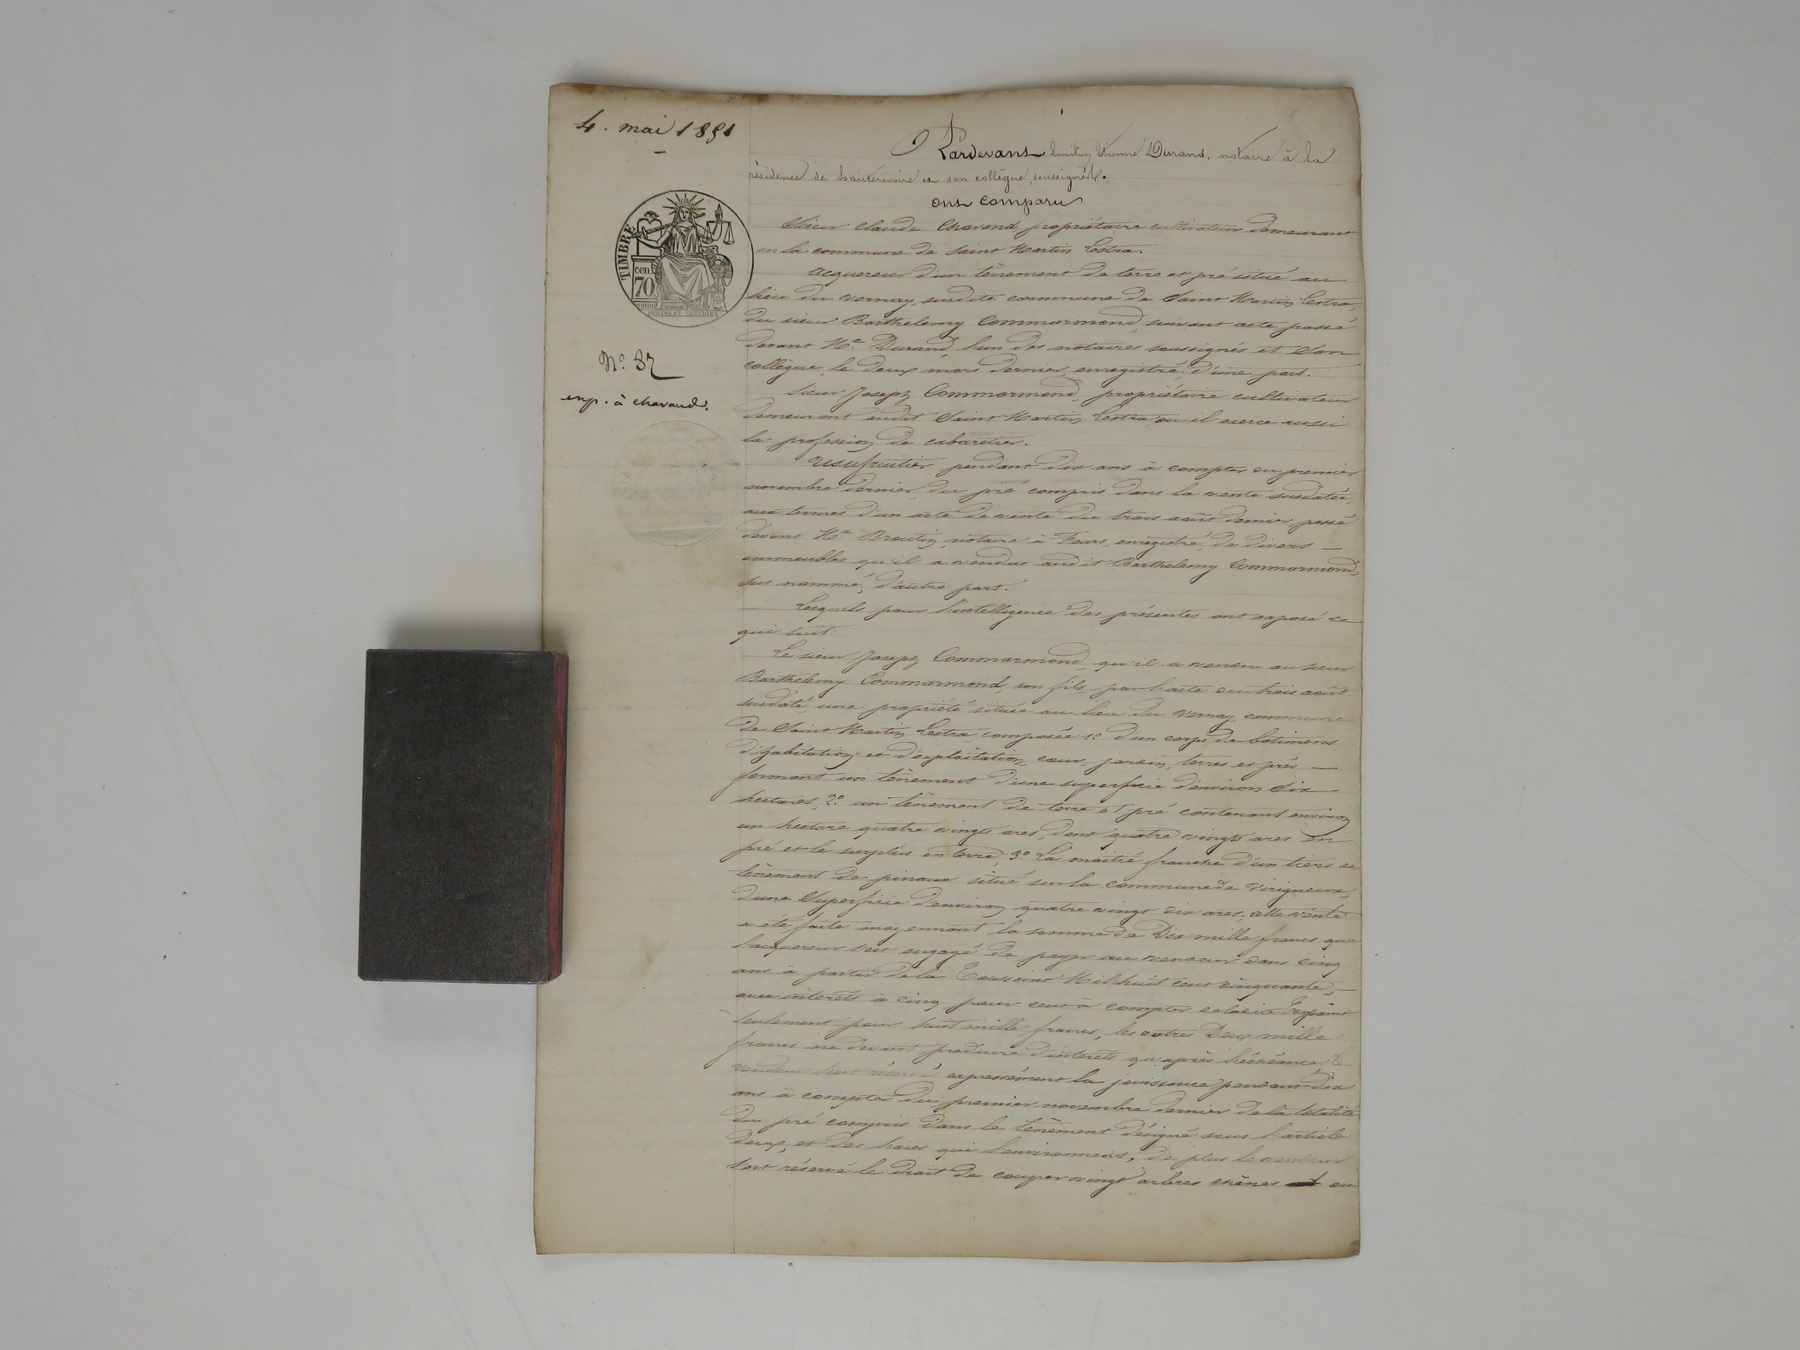 4. mai 1851
Pardevant Durand, notaire à la
résidence de et son collègue, soussignés.
ont comparu
Sieur Claude Chavand propriétaire cultivateur demeurant
en la commune de Saint Martin Lestra.
TIMBRE
cen
70
acquereur d'un tènement de terre et pré situé au
lieu du vernay, susdite commune de Saint Martin Lestra,
du sieur Barthelemy Commarmond, suivant acte passé
devant Me Durand, l'un des notaires soussignés et son
collègue, le deux mars dernier, enregistré, d'une part.
No. 87
exp. à chavand.
Sieur Joseph Commarmond, propriétaire cultivateur
demeurant audit Saint Martin Lestra où il exerce aussi
la profession de cabaretier.
Usufruitier, pendant dix ans à compter du premier
novembre dernier, du pré compris dans la vente susdatée,
aux termes d'un acte de vente du trois août dernier, passé
devant Me notaire à Feurs, enregistré, de divers
immeubles qu'il a vendus audit Barthelemy Commarmond,
sus nommé, d'autre part.
Lesquels pour l'intelligence des présentes ont exposé ce
qui suit:
Le sieur Joseph Commarmond, qu'il a vendu au sieur
Barthelemy Commarmond, son fils, par l'acte du trois août
susdaté, une propriété située au lieu du vernay, commune
de Saint Martin Lestra, composée 1o. d'un corps de batimens
d'habitation et d'exploitation, cour, jardin, terres et prés
formant un tènement d'une superficie d'environ six
hectares, 2o. un tènement de terre et pré contenant environ
un hectare quatre vingts ares, dont quatre vingts ares en
pré et le surplus en terre, 3o La moitié franche d'un tiers de
tènement de pinaux situé sur la commune de Virigneux,
d'une superficie d'environ quatre vingt dix ares, cette vente
a été faite moyennant la somme de Dix mille francs que
l'acquereur s'est engagé de payer au vendeur dans cinq
ans à partir de la Toussaint Mil huit cent cinquante,
avec intérêts à cinq pour cent à compter de ladite Toussaint
seulement pour huit mille francs, les autres Deux mille
francs ne devant produire d'intérêts qu'après l'échéance, le
vendeur s'est réservé expressément la jouissance pendant dix
ans à compter du premier novembre dernier de la totalité
du pré compris dans le tènement désigné sous l'article
deux, et des haies qui l'environnent, de plus le vendeur
s'est réservé le droit de couper vingt arbres chènes ou